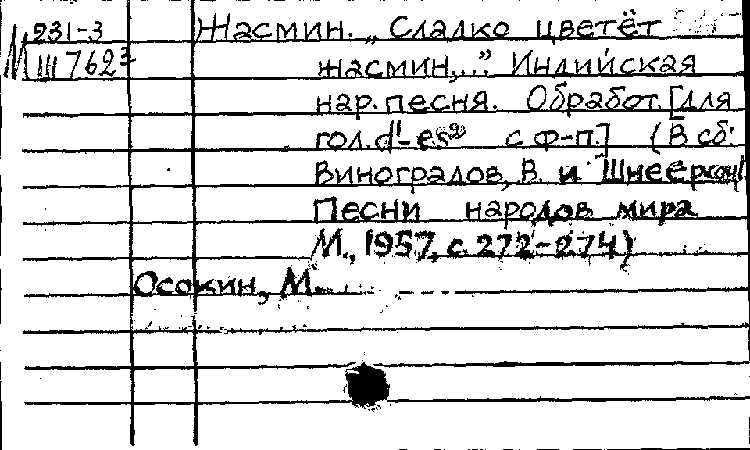 231-3 Жасмин. „Сладко цветёт
М III 762³ жасмин,..." Индийская
нар. песня. Обработ. [для
гол. d¹-es² с ф-п.] (В сб:
Виноградов, В. и Шнеерсон
Песни народов мира
М., 1957, с. 272-274)
Осокин, М.